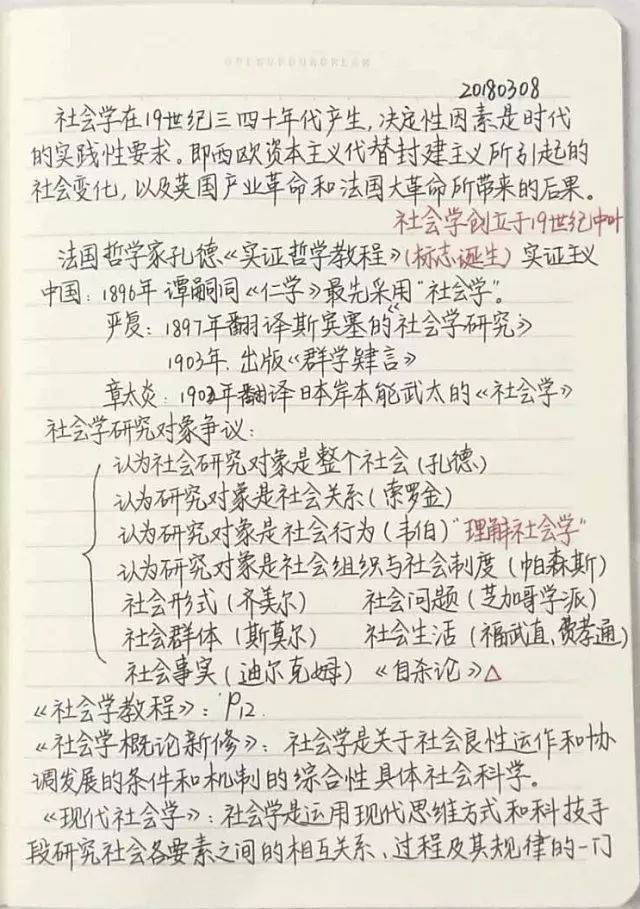 20180308
社会学在19世纪三四十年代产生,决定性因素是时代
的实践性要求。即西欧资本主义代替封建主义所引起的
社会变化,以及英国产业革命和法国大革命所带来的后果。
社会学创立于19世纪中叶
法国哲学家孔德《实证哲学教程》(标志诞生)实证主义
中国:1896年 谭嗣同《仁学》最先采用“社会学”。
严复:1897年翻译斯宾塞的《社会学研究》
1903年.出版《群学肄言》
章太炎:1902年翻译日本岸本能武太的《社会学》
社会学研究对象争议:
认为社会研究对象是整个社会(孔德)
认为研究对象是社会关系(索罗金)
认为研究对象是社会行为(韦伯)“理解社会学”
认为研究对象是社会组织与社会制度(帕森斯)
社会形式(齐美尔) 社会问题(芝加哥学派)
社会群体(斯莫尔) 社会生活(福武直、费孝通)
社会事实(迪尔克姆)《自杀论》△
《社会学教程》:P12.
《社会学概论新修》:社会学是关于社会良性运作和协
调发展的条件和机制的综合性具体社会科学。
《现代社会学》:社会学是运用现代思维方式和科技手
段研究社会各要素之间的相互关系、过程及其规律的一门